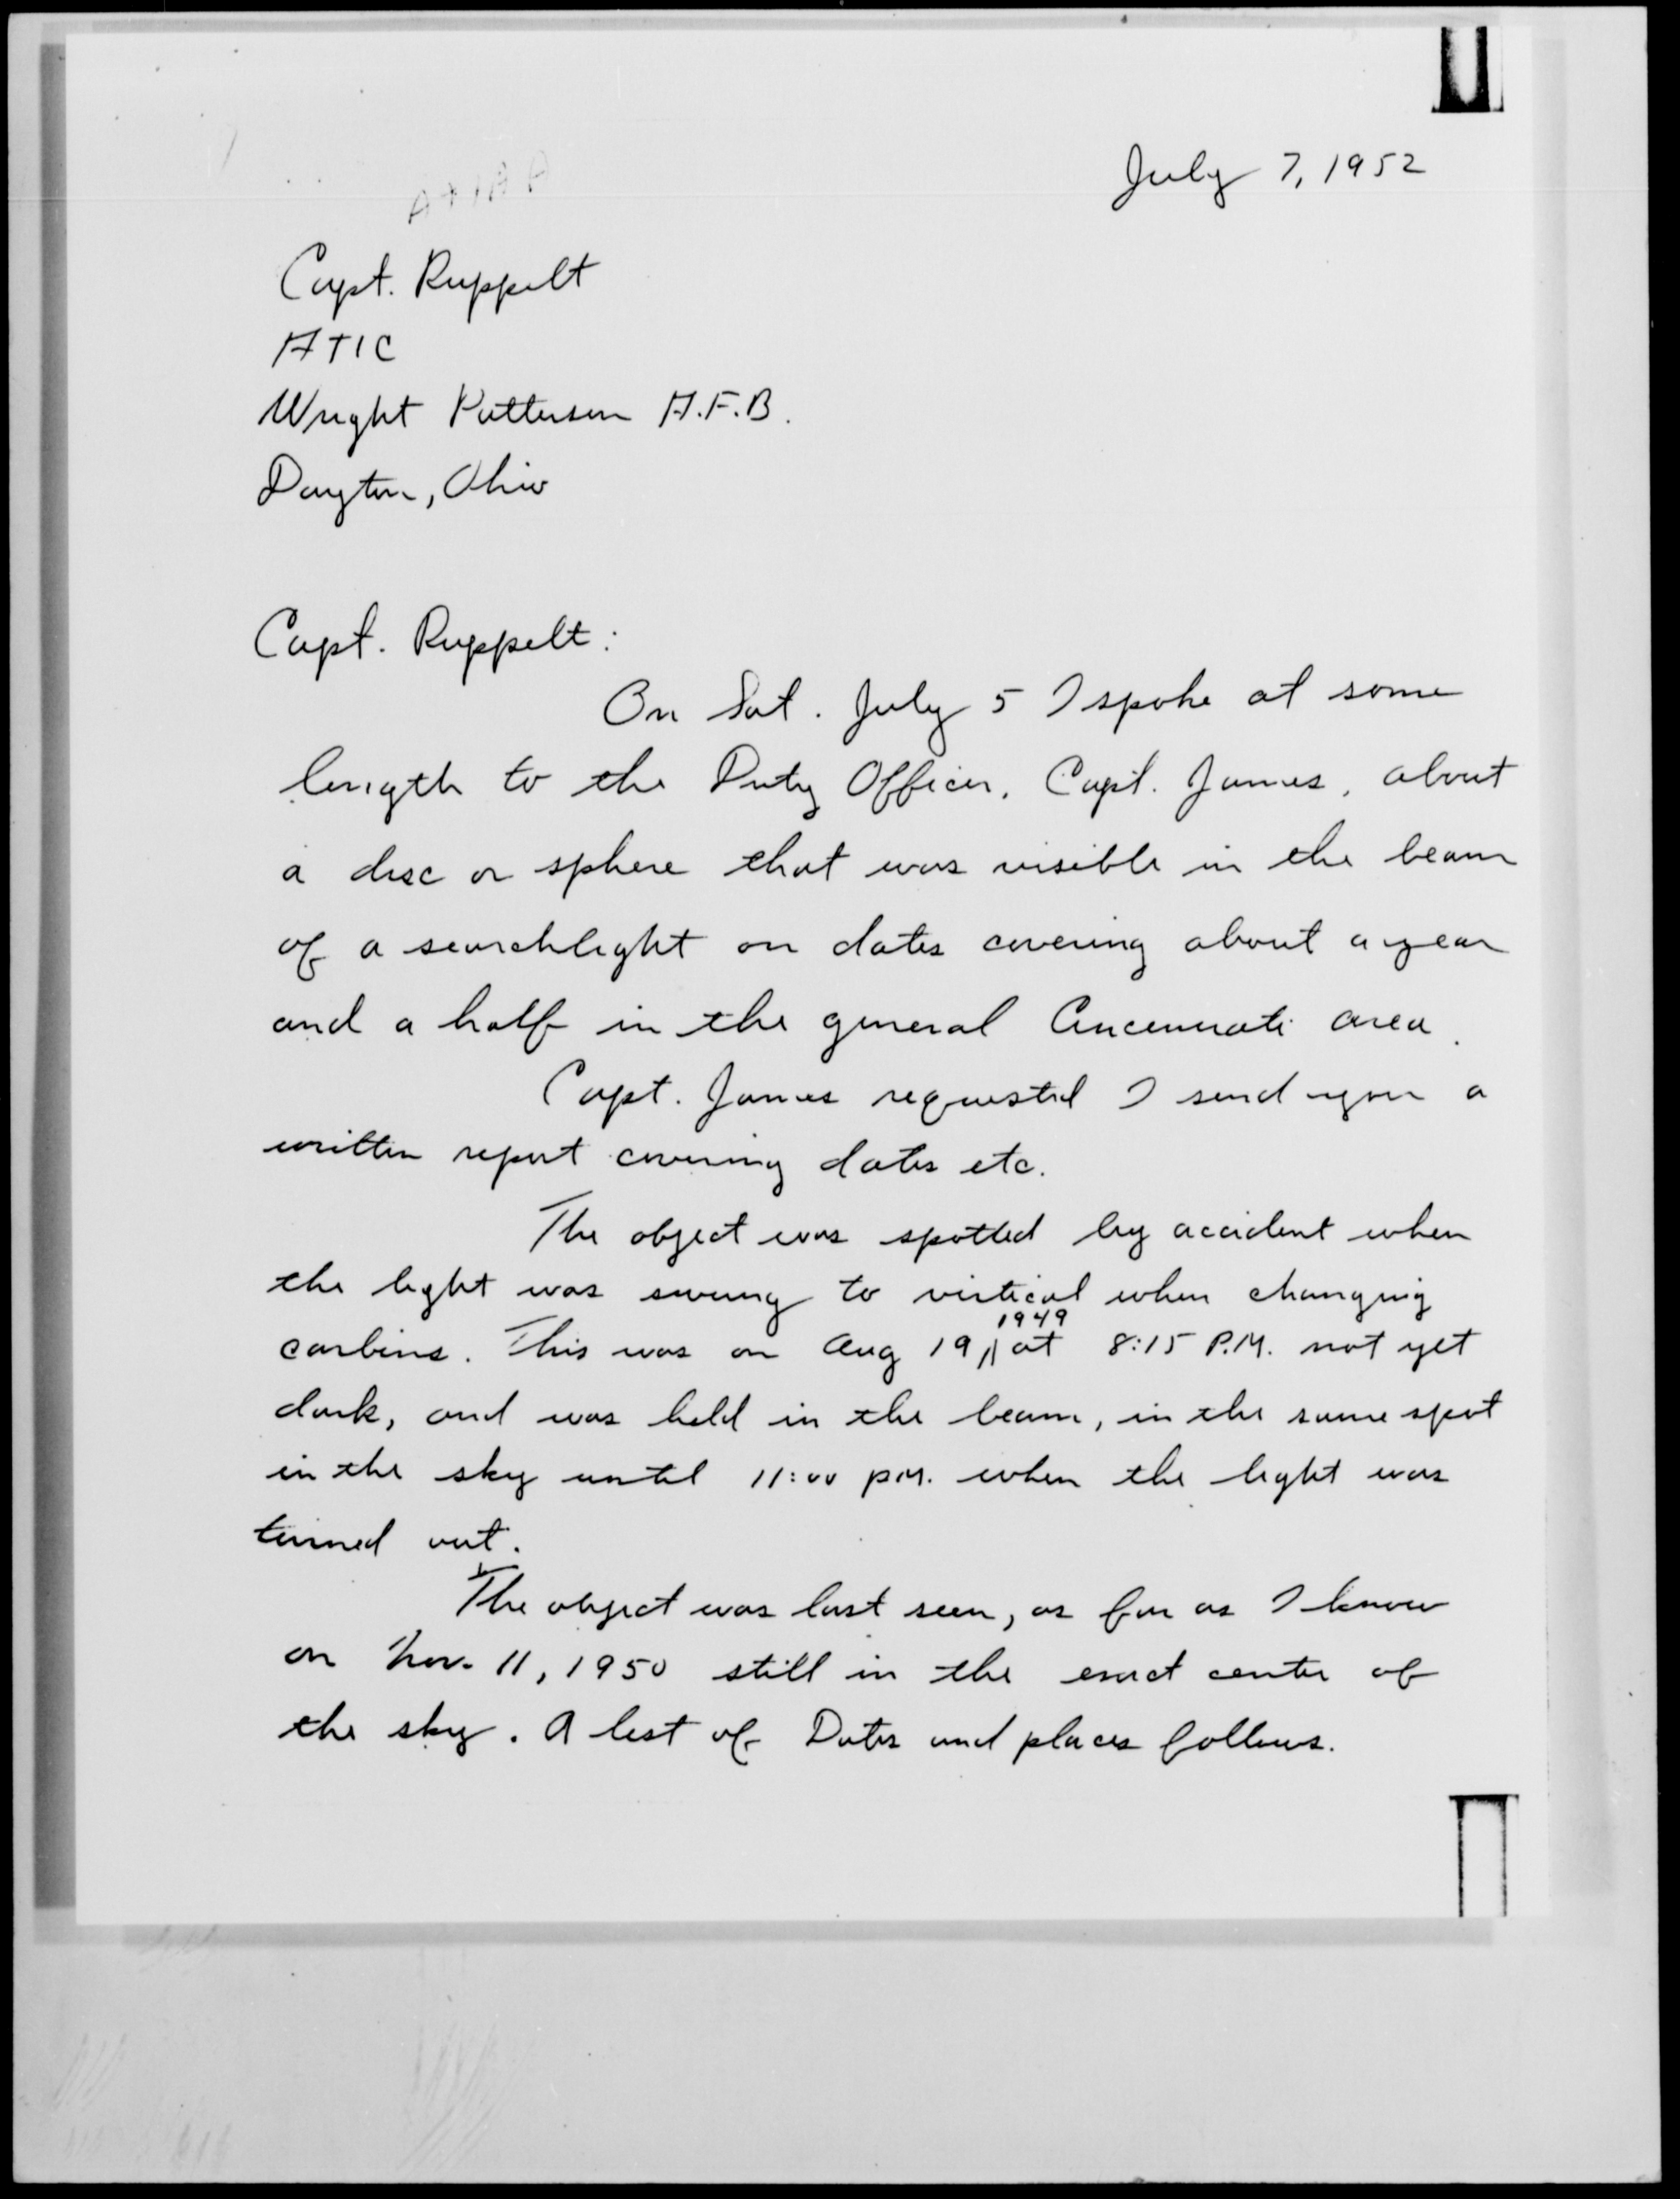 July 7, 1952
Capt. Ruppelt
ATIC
Wright Patterson A.F.B.
Dayton, Ohio
Capt. Ruppelt:
On Sat. July 5 I spoke at some
length to the Duty Officer, Capt. James, about
a disc or sphere that was visible in the beam
of a searchlight on dates covering about a year
and a half in the general Cincinnati area.
Capt. James requested I send you a
written report covering dates etc.
The object was spotted by accident when
the light was swung to vertical when changing
carbins. This was on Aug 19, 1949 at 8:15 P.M. not yet
dark, and was held in the beam, in the same spot
in the sky until 11:00 P.M. when the light was
turned out.
The object was last seen, as far as I know
on Nov. 11, 1950 still in the exact center of
the sky. A list of Dates and places follows.